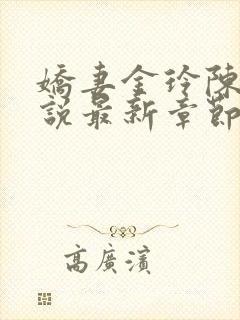 嬌妻金玲陳
說最新章節
高廣濱